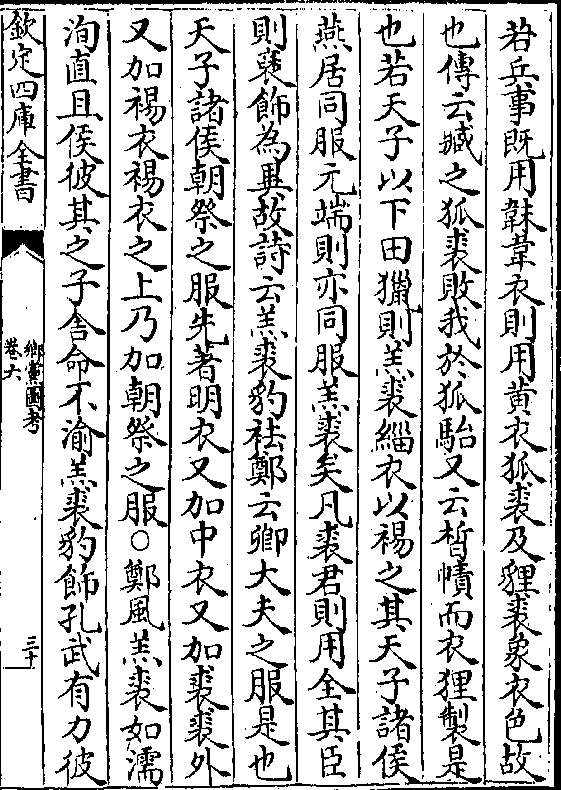 若兵事既用韎韋衣則用黄衣狐裘及貍裘象衣色故
也傳云臧之狐裘敗我於狐駘又云晳幘而衣狸製是
也若天子以下田獵則羔裘緇衣以裼之其天子諸侯
燕居同服元端則亦同服羔裘矣凡裘君則用全其臣
則褎飾為異故詩云羔裘豹袪鄭云卿大夫之服是也
天子諸侯朝祭之服先著明衣又加中衣又加裘裘外
又加裼衣裼衣之上乃加朝祭之服○鄭風羔裘如濡
洵直且侯彼其之子舍命不渝羔裘豹飾孔武有力彼
欽定四庫全書
鄉黨圖考
卷六
三十